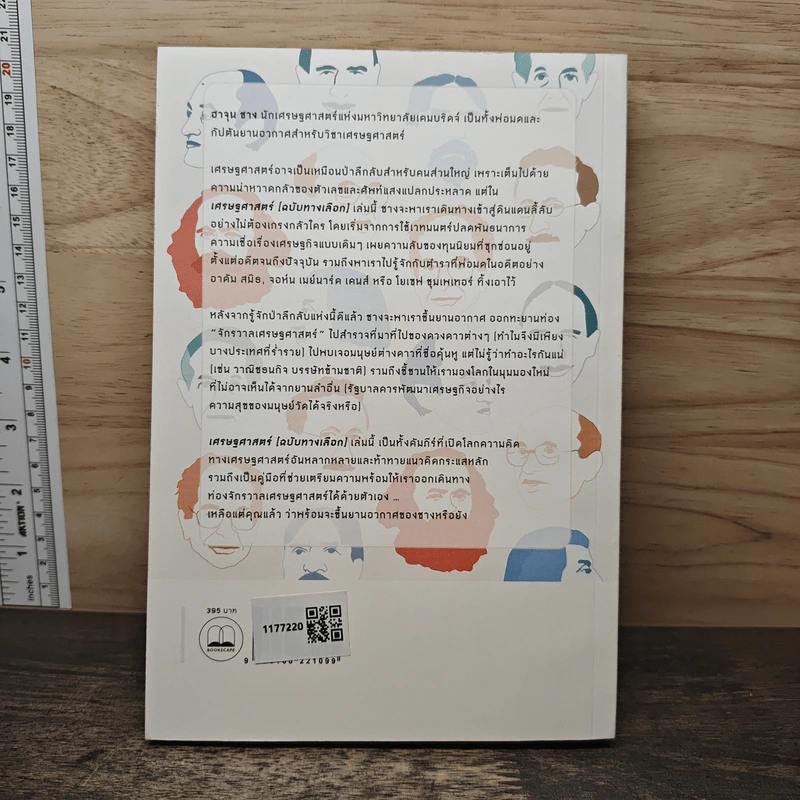 ฮาจุน ชาง นักเศรษฐศาสตร์แห่งมหาวิทยาลัยเคมบริดจ์ เป็นทั้งพ่อมดและ
กัปตันยานอวกาศสำหรับวิชาเศรษฐศาสตร์
เศรษฐศาสตร์อาจเป็นเหมือนป่าลึกลับสำหรับคนส่วนใหญ่ เพราะเต็มไปด้วย
ความน่าหวาดกลัวของตัวเลขและศัพท์แสงแปลกประหลาด แต่ใน
เศรษฐศาสตร์ [ฉบับทางเลือก] เล่มนี้ ชางจะพาเราเดินทางเข้าสู่ดินแดนลี้ลับ
อย่างไม่ต้องเกรงกลัวใคร โดยเริ่มจากการใช้เวทมนตร์ปลดพันธนาการ
ความเชื่อเรื่องเศรษฐกิจแบบเดิมๆ เผยความลับของทุนนิยมที่ซุกซ่อนอยู่
ตั้งแต่อดีตจนถึงปัจจุบัน รวมถึงพาเราไปรู้จักกับตำราที่พ่อมดในอดีตอย่าง
อาดัม สมิธ, จอห์น เมย์นาร์ด เคนส์ หรือ โยเซฟ ชุมเพเทอร์ ทิ้งเอาไว้
หลังจากรู้จักป่าลึกลับแห่งนี้ดีแล้ว ชางจะพาเราขึ้นยานอวกาศ ออกทะยานท่อง
“จักรวาลเศรษฐศาสตร์” ไปสำรวจที่มาที่ไปของดวงดาวต่างๆ [ทำไมจึงมีเพียง
บางประเทศที่ร่ำรวย] ไปพบเจอมนุษย์ต่างดาวที่ชื่อคุ้นหู แต่ไม่รู้ว่าทำอะไรกันแน่
[เช่น วาณิชธนกิจ บรรษัทข้ามชาติ] รวมถึงชี้ชวนให้เรามองโลกในมุมมองใหม่
ที่ไม่อาจเห็นได้จากยานลำอื่น [รัฐบาลควรพัฒนาเศรษฐกิจอย่างไร
ความสุขของมนุษย์วัดได้จริงหรือ]
เศรษฐศาสตร์ [ฉบับทางเลือก] เล่มนี้ เป็นทั้งคัมภีร์ที่เปิดโลกความคิด
ทางเศรษฐศาสตร์อันหลากหลายและท้าทายแนวคิดกระแสหลัก
รวมถึงเป็นคู่มือที่ช่วยเตรียมความพร้อมให้เราออกเดินทาง
ท่องจักรวาลเศรษฐศาสตร์ได้ด้วยตัวเอง ...
เหลือแต่คุณแล้ว ว่าพร้อมจะขึ้นยานอวกาศของชางหรือยัง
395 บาท
BOOKSCAPE
1177220
221099
inches